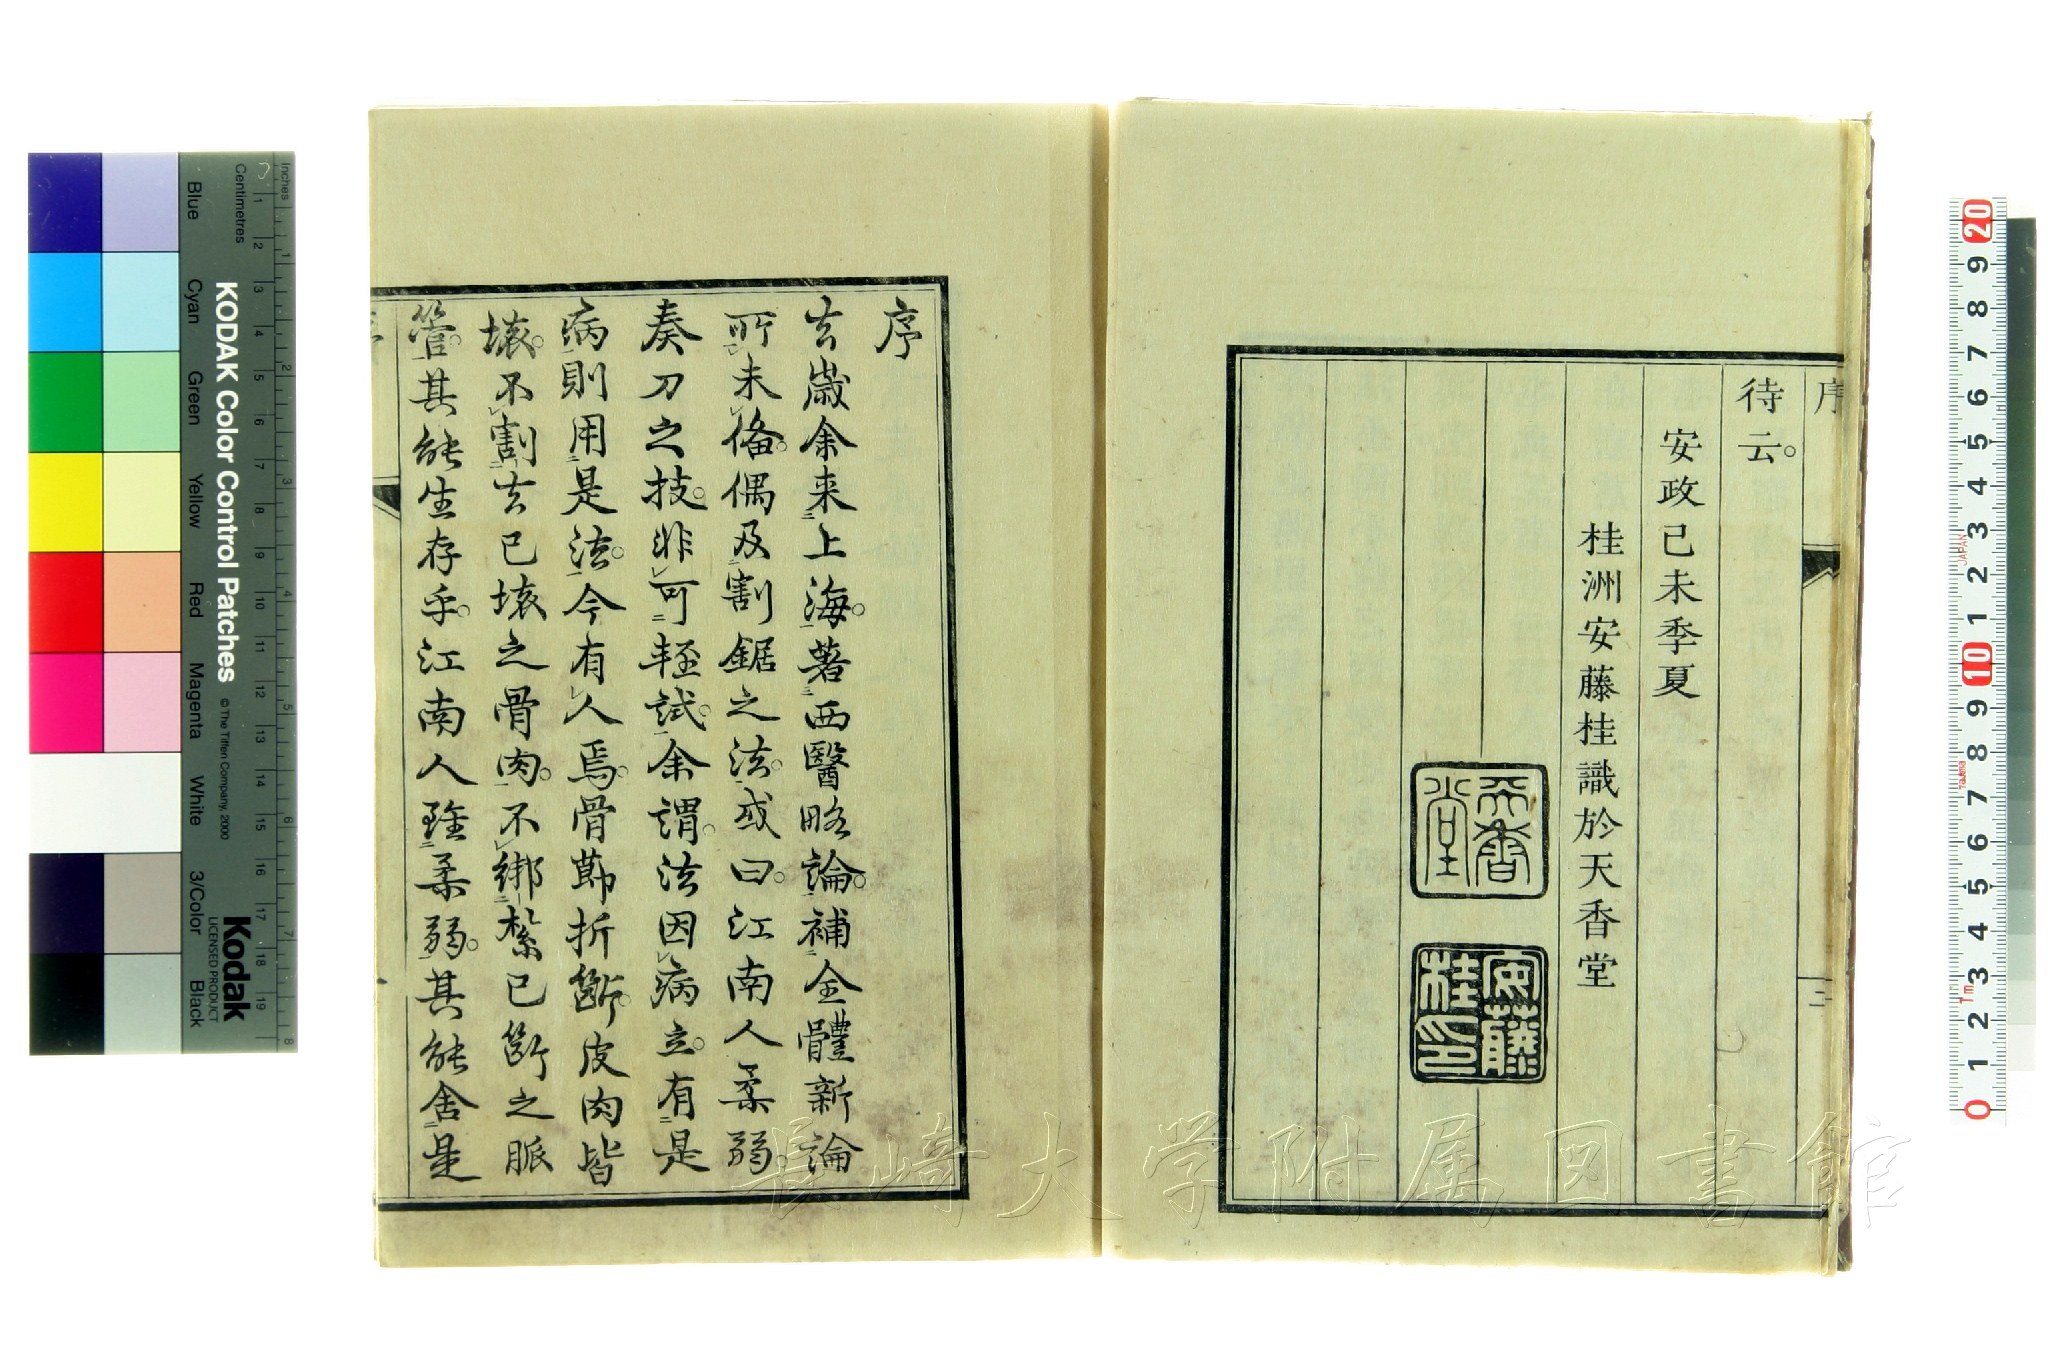 序
待云。
安政己未季夏
桂洲安藤桂識於天香堂
天香堂
安藤桂印
序
去歲余来上海。著西醫略論。補全體新論
所未偹。偶及割鋸之法。或曰。江南人柔弱。
奏刀之技。非可輕試。余謂。法因病立。有是
病則用是法。今有人焉。骨節折斷。皮肉皆
壊。不割去已壊之骨肉。不綁紮已斷之脈
管。其能生存乎。江南人雖柔弱。其能舍是
長崎大学附属図書館
KODAK Color Control Patches
© The Tiffen Company, 2000
Kodak
LICENSED PRODUCT
Inches
Centimetres
Blue
Cyan
Green
Yellow
Red
Magenta
White
3/Color
Black
1 2 3 4 5 6 7 8 9 10 11 12 13 14 15 16 17 18 19
1 2 3 4 5 6 7 8
20 9 8 7 6 5 4 3 2 1 10 9 8 7 6 5 4 3 2 1 0
JAPAN
Tajima